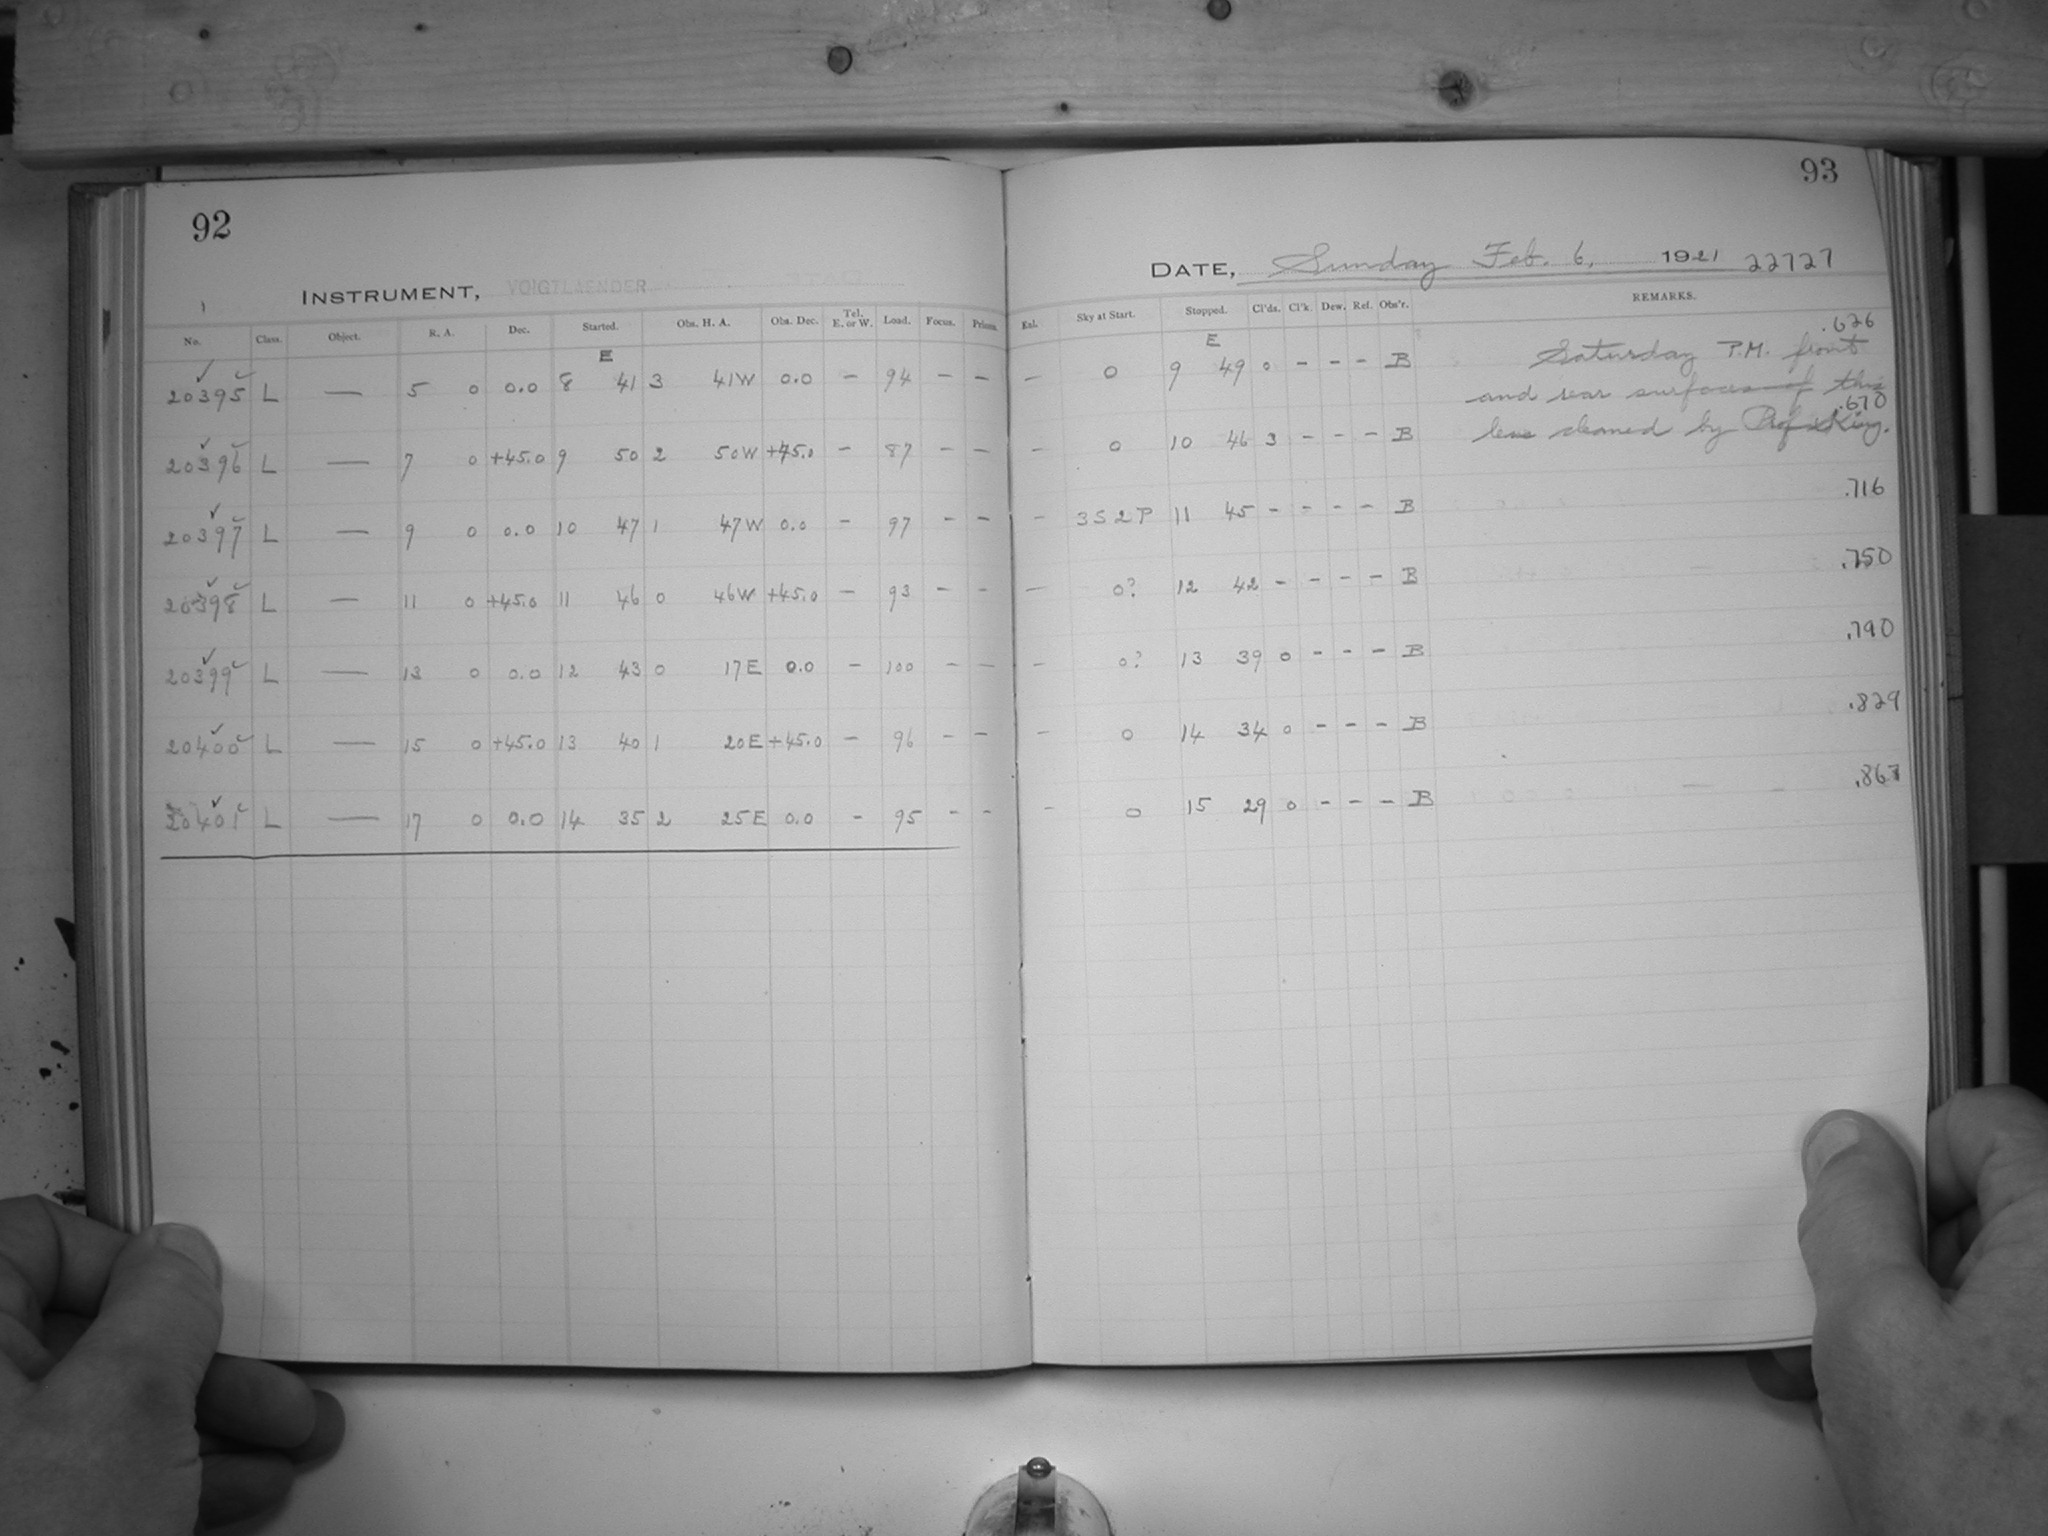 92
INSTRUMENT, VOIGTLAENDER
No. Class. Object. R. A. Dec. Started. Obs. H. A. Obs. Dec. Tel. E. or W. Load. Focus. Prisms.
E
20395 L — 5 0 0.0 8 41 3 41W 0.0 – 94 – –
20396 L — 7 0 +45.0 9 50 2 50W +45.0 – 87 – –
20397 L — 9 0 0.0 10 47 1 47W 0.0 – 97 – –
20398 L — 11 0 +45.0 11 46 0 46W +45.0 – 93 – –
20399 L — 13 0 0.0 12 43 0 17E 0.0 – 100 – –
20400 L — 15 0 +45.0 13 40 1 20E +45.0 – 96 – –
20401 L — 17 0 0.0 14 35 2 25E 0.0 – 95 – –
93
DATE, Sunday Feb. 6, 1921 22727
Sky at Start. Stopped. Cl'ds. Cl'k. Dew. Ref. Obs'r. REMARKS.
E
– 0 9 49 0 – – – B Saturday P.M. front .626
and rear surfaces of this
– 0 10 46 3 – – – B lens cleaned by Prof. King. .670
– 3S2P 11 45 – – – – B .716
– 0? 12 42 – – – – B .750
– 0? 13 39 0 – – – B .790
– 0 14 34 0 – – – B .829
– 0 15 29 0 – – – B .867